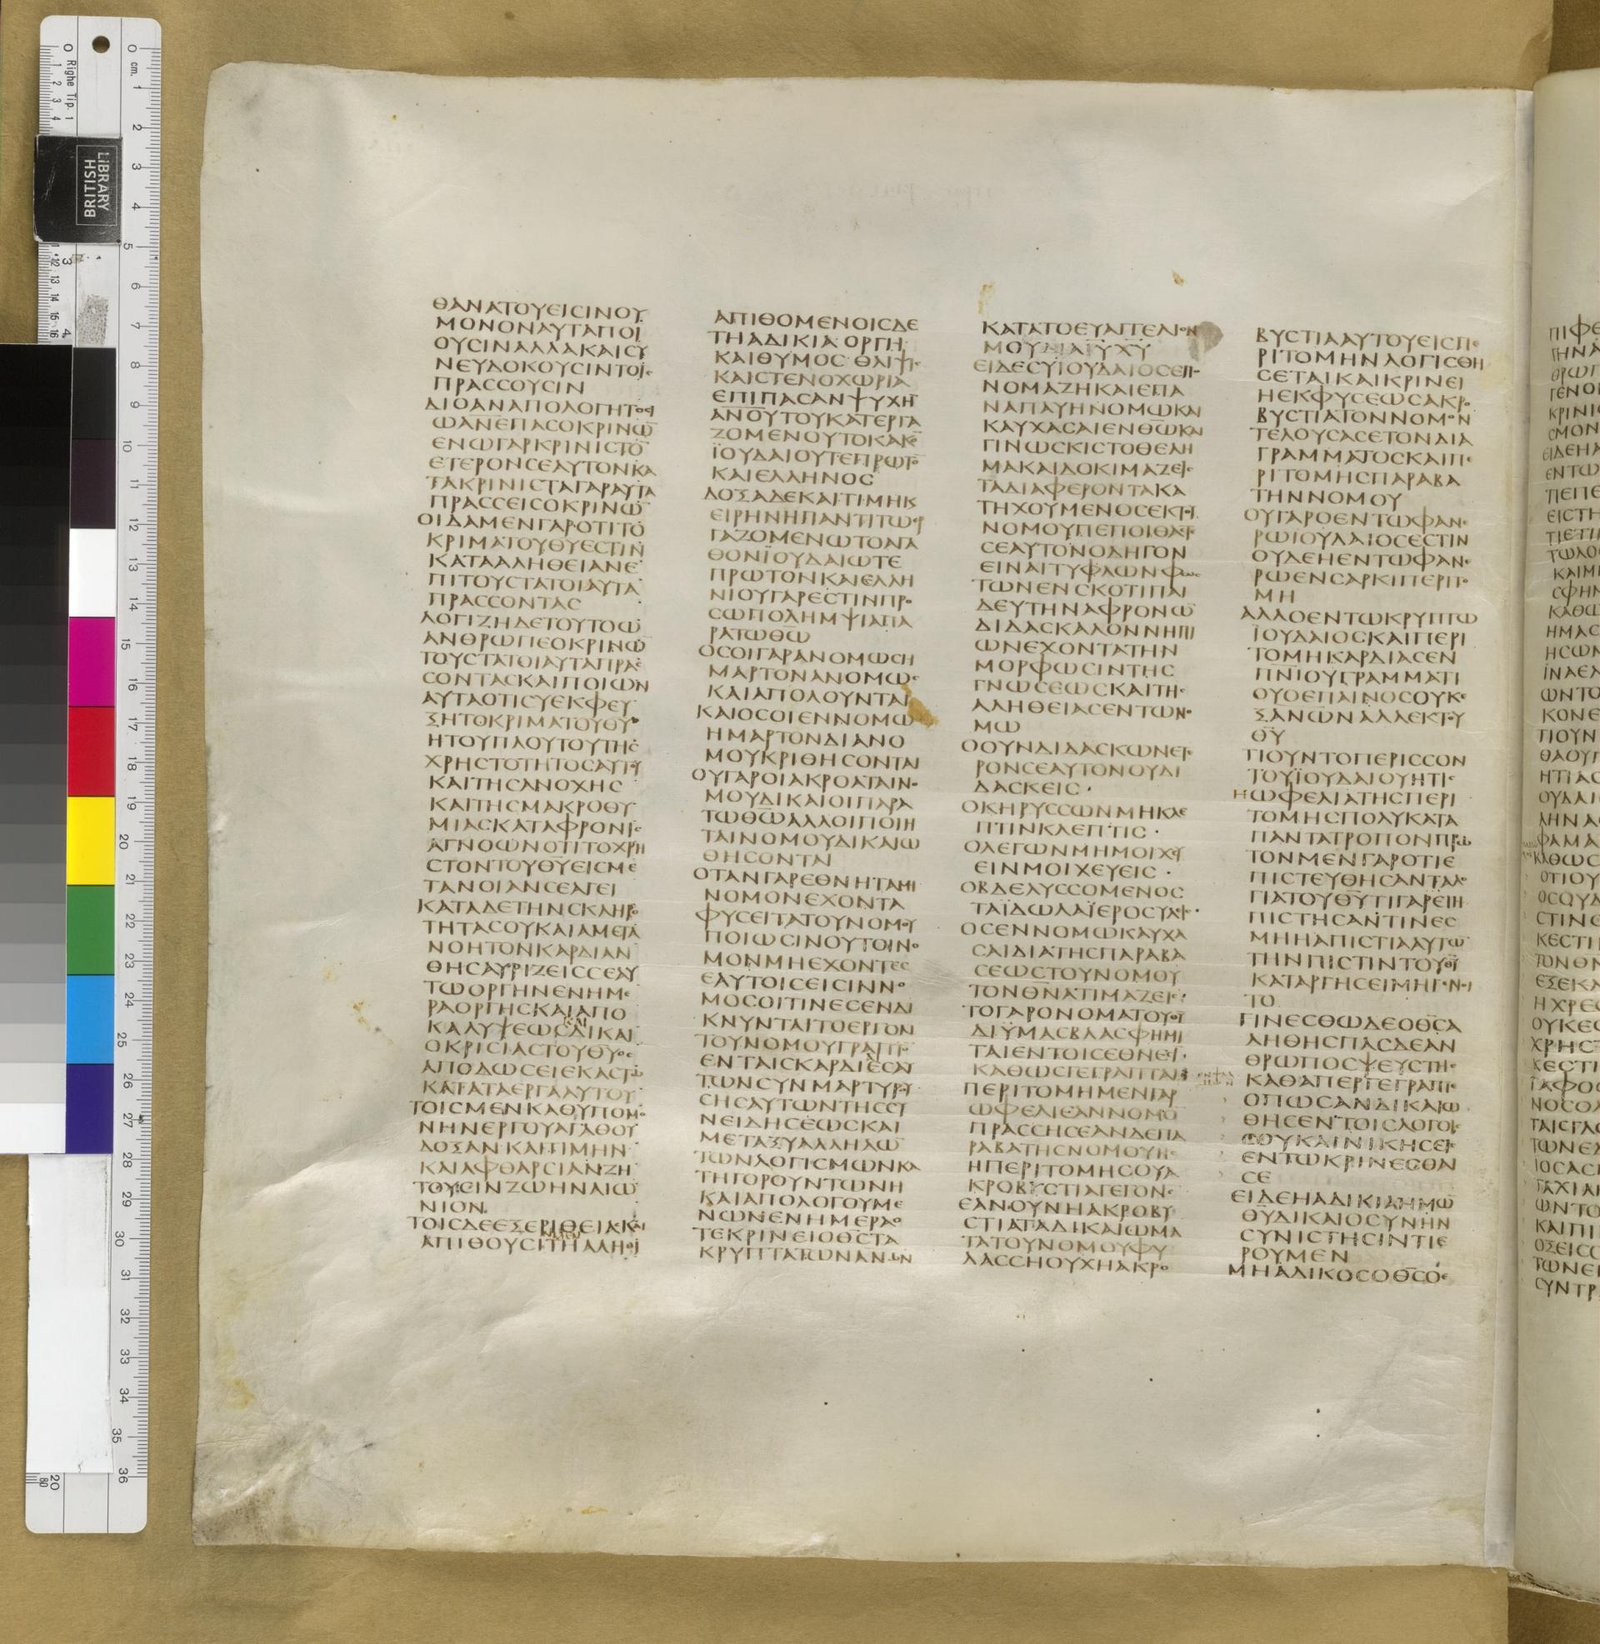 ΘΑΝΑΤΟΥΕΙCΙΝΟΥ
ΜΟΝΟΝΑΥΤΑΠΟΙ
ΟΥCΙΝΑΛΛΑΚΑΙCΥ
ΝΕΥΔΟΚΟΥCΙΝΤΟΙC
ΠΡΑCCΟΥCΙΝ
ΔΙΟΑΝΑΠΟΛΟΓΗΤΟCΕΙ
ΩΑΝΕΠΑCΟΚΡΙΝΩ̅
ΕΝΩΓΑΡΚΡΙΝΙCΤΟ̅
ΕΤΕΡΟΝCΕΑΥΤΟΝΚΑ
ΤΑΚΡΙΝΙCΤΑΓΑΡΑΥΤΑ
ΠΡΑCCΕΙCΟΚΡΙΝΩ̅
ΟΙΔΑΜΕΝΓΑΡΟΤΙΤΟ
ΚΡΙΜΑΤΟΥΘΥΕCΤΙΝ
ΚΑΤΑΑΛΗΘΕΙΑΝΕ
ΠΙΤΟΥCΤΑΤΟΙΑΥΤΑ
ΠΡΑCCΟΝΤΑC
ΛΟΓΙΖΗΔΕΤΟΥΤΟΩ
ΑΝΘΡΩΠΕΟΚΡΙΝΩ̅
ΤΟΥCΤΑΤΟΙΑΥΤΑΠΡΑC
CΟΝΤΑCΚΑΙΠΟΙΩΝ
ΑΥΤΑΟΤΙCΥΕΚΦΕΥ
ΞΗΤΟΚΡΙΜΑΤΟΥΘΥ
ΗΤΟΥΠΛΟΥΤΟΥΤΗC
ΧΡΗCΤΟΤΗΤΟCΑΥΤΟΥ
ΚΑΙΤΗCΑΝΟΧΗC
ΚΑΙΤΗCΜΑΚΡΟΘΥ
ΜΙΑCΚΑΤΑΦΡΟΝΙC
ΑΓΝΟΩΝΟΤΙΤΟΧΡΗ
CΤΟΝΤΟΥΘΥΕΙCΜΕ
ΤΑΝΟΙΑΝCΕΑΓΕΙ
ΚΑΤΑΔΕΤΗΝCΚΛΗΡΟ
ΤΗΤΑCΟΥΚΑΙΑΜΕΤΑ
ΝΟΗΤΟΝΚΑΡΔΙΑΝ
ΘΗCΑΥΡΙΖΕΙCCΕΑΥ
ΤΩΟΡΓΗΝΕΝΗΜΕ
ΡΑΟΡΓΗCΚΑΙΑΠΟ
ΚΑΛΥΨΕΩCΔΙΚΑΙ
ΟΚΡΙCΙΑCΤΟΥΘΥΟC
ΑΠΟΔΩCΕΙΕΚΑCΤΩ
ΚΑΤΑΤΑΕΡΓΑΑΥΤΟΥ
ΤΟΙCΜΕΝΚΑΘΥΠΟΜΟ
ΝΗΝΕΡΓΟΥΑΓΑΘΟΥ
ΔΟΞΑΝΚΑΙΤΙΜΗΝ
ΚΑΙΑΦΘΑΡCΙΑΝΖΗ
ΤΟΥCΙΝΖΩΗΝΑΙΩ
ΝΙΟΝ
ΤΟΙCΔΕΕΞΕΡΙΘΕΙΑCΚΑΙ
ΑΠΙΘΟΥCΙΤΗΑΛΗΘΙ
ΑΠΙΘΟΜΕΝΟΙCΔΕ
ΤΗΑΔΙΚΙΑΟΡΓΗ
ΚΑΙΘΥΜΟCΘΛΙΨΙC
ΚΑΙCΤΕΝΟΧΩΡΙΑ
ΕΠΙΠΑCΑΝΨΥΧΗΝ
ΑΝΟΥΤΟΥΚΑΤΕΡΓΑ
ΖΟΜΕΝΟΥΤΟΚΑΚΟ̅
ΪΟΥΔΑΙΟΥΤΕΠΡΩΤΟ̅
ΚΑΙΕΛΛΗΝΟC
ΔΟΞΑΔΕΚΑΙΤΙΜΗΚΑΙ
ΕΙΡΗΝΗΠΑΝΤΙΤΩΕΡ
ΓΑΖΟΜΕΝΩΤΟΑΓΑ
ΘΟΝΪΟΥΔΑΙΩΤΕ
ΠΡΩΤΟΝΚΑΙΕΛΛΗ
ΝΙΟΥΓΑΡΕCΤΙΝΠΡΟ
CΩΠΟΛΗΜΨΙΑΠΑ
ΡΑΤΩΘΩ
ΟCΟΙΓΑΡΑΝΟΜΩCΗ
ΜΑΡΤΟΝΑΝΟΜΩC
ΚΑΙΑΠΟΛΟΥΝΤΑΙ
ΚΑΙΟCΟΙΕΝΝΟΜΩ
ΗΜΑΡΤΟΝΔΙΑΝΟ
ΜΟΥΚΡΙΘΗCΟΝΤΑΙ
ΟΥΓΑΡΟΙΑΚΡΟΑΤΑΙΝΟ
ΜΟΥΔΙΚΑΙΟΙΠΑΡΑ
ΤΩΘΩΑΛΛΟΙΠΟΙΗ
ΤΑΙΝΟΜΟΥΔΙΚΑΙΩ
ΘΗCΟΝΤΑΙ
ΟΤΑΝΓΑΡΕΘΝΗΤΑΜΗ
ΝΟΜΟΝΕΧΟΝΤΑ
ΦΥCΕΙΤΑΤΟΥΝΟΜΟΥ
ΠΟΙΩCΙΝΟΥΤΟΙΝΟ
ΜΟΝΜΗΕΧΟΝΤΕC
ΕΑΥΤΟΙCΕΙCΙΝΝΟ
ΜΟCΟΙΤΙΝΕCΕΝΔΙ
ΚΝΥΝΤΑΙΤΟΕΡΓΟΝ
ΤΟΥΝΟΜΟΥΓΡΑΠΤΟ̅
ΕΝΤΑΙCΚΑΡΔΙΑΙCΑΥ
ΤΩΝCΥΝΜΑΡΤΥΡΟΥ
CΗCΑΥΤΩΝΤΗCCΥ
ΝΕΙΔΗCΕΩCΚΑΙ
ΜΕΤΑΞΥΑΛΛΗΛΩ̅
ΤΩΝΛΟΓΙCΜΩΝΚΑ
ΤΗΓΟΡΟΥΝΤΩΝΗ
ΚΑΙΑΠΟΛΟΓΟΥΜΕ
ΝΩΝΕΝΗΜΕΡΑΟ
ΤΕΚΡΙΝΕΙΟΘCΤΑ
ΚΡΥΠΤΑΤΩΝΑΝΩΝ
ΚΑΤΑΤΟΕΥΑΓΓΕΛΙΟΝ
ΜΟΥΔΙΑΙΥΧΥ
ΕΙΔΕCΥΪΟΥΔΑΙΟCΕΠΟ
ΝΟΜΑΖΗΚΑΙΕΠΑ
ΝΑΠΑΥΗΝΟΜΩΚΑΙ
ΚΑΥΧΑCΑΙΕΝΘΩΚΑΙ
ΓΙΝΩCΚΙCΤΟΘΕΛΗ
ΜΑΚΑΙΔΟΚΙΜΑΖΕΙC
ΤΑΔΙΑΦΕΡΟΝΤΑΚΑ
ΤΗΧΟΥΜΕΝΟCΕΚΤΟΥ
ΝΟΜΟΥΠΕΠΟΙΘΑCΤΕ
CΕΑΥΤΟΝΟΔΗΓΟΝ
ΕΙΝΑΙΤΥΦΛΩΝΦΩC
ΤΩΝΕΝCΚΟΤΙΠΑΙ
ΔΕΥΤΗΝΑΦΡΟΝΩ̅
ΔΙΔΑCΚΑΛΟΝΝΗΠΙ
ΩΝΕΧΟΝΤΑΤΗΝ
ΜΟΡΦΩCΙΝΤΗC
ΓΝΩCΕΩCΚΑΙΤΗC
ΑΛΗΘΕΙΑCΕΝΤΩΝΟ
ΜΩ
ΟΟΥΝΔΙΔΑCΚΩΝΕΤΕ
ΡΟΝCΕΑΥΤΟΝΟΥΔΙ
ΔΑCΚΕΙC·
ΟΚΗΡΥCCΩΝΜΗΚΛΕ
ΠΤΙΝΚΛΕΠΤΙC·
ΟΛΕΓΩΝΜΗΜΟΙΧΕΥ
ΕΙΝΜΟΙΧΕΥΕΙC·
ΟΒΔΕΛΥCCΟΜΕΝΟC
ΤΑΪΔΩΛΑΪΕΡΟCΥΛΙC·
ΟCΕΝΝΟΜΩΚΑΥΧΑ
CΑΙΔΙΑΤΗCΠΑΡΑΒΑ
CΕΩCΤΟΥΝΟΜΟΥ
ΤΟΝΘΝΑΤΙΜΑΖΕΙC·
ΤΟΓΑΡΟΝΟΜΑΤΟΥΘΥ
ΔΙΥΜΑCΒΛΑCΦΗΜΙ
ΤΑΙΕΝΤΟΙCΕΘΝΕCΙ·
ΚΑΘΩCΓΕΓΡΑΠΤΑΙ
ΠΕΡΙΤΟΜΗΜΕΝΓΑΡ
ΩΦΕΛΙΕΑΝΝΟΜΟ̅
ΠΡΑCCΗCΕΑΝΔΕΠΑ
ΡΑΒΑΤΗCΝΟΜΟΥΗC
ΗΠΕΡΙΤΟΜΗCΟΥΑ
ΚΡΟΒΥCΤΙΑΓΕΓΟΝΕ
ΕΑΝΟΥΝΗΑΚΡΟΒΥ
CΤΙΑΤΑΔΙΚΑΙΩΜΑ
ΤΑΤΟΥΝΟΜΟΥΦΥ
ΛΑCCΗΟΥΧΗΑΚΡΟ
ΒΥCΤΙΑΑΥΤΟΥΕΙCΠΕ
ΡΙΤΟΜΗΝΛΟΓΙCΘΗ
CΕΤΑΙΚΑΙΚΡΙΝΕΙ
ΗΕΚΦΥCΕΩCΑΚΡΟ
ΒΥCΤΙΑΤΟΝΝΟΜΟΝ
ΤΕΛΟΥCΑCΕΤΟΝΔΙΑ
ΓΡΑΜΜΑΤΟCΚΑΙΠΕ
ΡΙΤΟΜΗCΠΑΡΑΒΑ
ΤΗΝΝΟΜΟΥ
ΟΥΓΑΡΟΕΝΤΩΦΑΝΕ
ΡΩΪΟΥΔΑΙΟCΕCΤΙΝ
ΟΥΔΕΗΕΝΤΩΦΑΝΕ
ΡΩΕΝCΑΡΚΙΠΕΡΙΤΟ
ΜΗ
ΑΛΛΟΕΝΤΩΚΡΥΠΤΩ
ΪΟΥΔΑΙΟCΚΑΙΠΕΡΙ
ΤΟΜΗΚΑΡΔΙΑCΕΝ
ΠΝΙΟΥΓΡΑΜΜΑΤΙ
ΟΥΟΕΠΑΙΝΟCΟΥΚΕ
ΞΑΝΩΝΑΛΛΕΚΤΟΥ
ΘΥ
ΤΙΟΥΝΤΟΠΕΡΙCCΟΝ
ΤΟΥΪΟΥΔΑΙΟΥΗΤΙC
ΗΩΦΕΛΙΑΤΗCΠΕΡΙ
ΤΟΜΗCΠΟΛΥΚΑΤΑ
ΠΑΝΤΑΤΡΟΠΟΝΠΡΩ
ΤΟΝΜΕΝΓΑΡΟΤΙΕ
ΠΙCΤΕΥΘΗCΑΝΤΑΛΟ
ΓΙΑΤΟΥΘΥΤΙΓΑΡΕΙΗ
ΠΙCΤΗCΑΝΤΙΝΕC
ΜΗΗΑΠΙCΤΙΑΑΥΤΩ̅
ΤΗΝΠΙCΤΙΝΤΟΥΘΥ
ΚΑΤΑΡΓΗCΕΙΜΗΓΕΝΟΙ
ΤΟ
ΓΙΝΕCΘΩΔΕΟΘCΑ
ΛΗΘΗCΠΑCΔΕΑΝ
ΘΡΩΠΟCΨΕΥCΤΗC
ΚΑΘΑΠΕΡΓΕΓΡΑΠΤΕ
ΟΠΩCΑΝΔΙΚΑΙΩ
ΘΗCΕΝΤΟΙCΛΟΓΟΙC
CΟΥΚΑΙΝΙΚΗCΕΙC
ΕΝΤΩΚΡΙΝΕCΘΑΙ
CΕ
ΕΙΔΕΗΑΔΙΚΙΑΗΜΩ̅
ΘΥΔΙΚΑΙΟCΥΝΗΝ
CΥΝΙCΤΗCΙΝΤΙΕ
ΡΟΥΜΕΝ
ΜΗΑΔΙΚΟCΟΘCΟΕ
BRITISH
LIBRARY
Righe Tip. 1
cm.